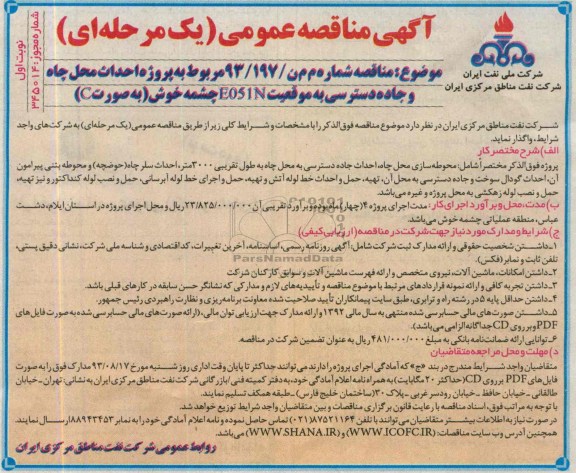 آگهی مناقصه عمومی (یک مرحله‌ای)
شرکت ملی نفت ایران
شرکت نفت مناطق مرکزی ایران
شماره مجوز: ۳۴۵۰۱۴
نوبت اول
موضوع: مناقصه شماره م م ن / ۹۳/۱۹۷ مربوط به پروژه احداث محل چاه
و جاده دسترسی به موقعیت E051N چشمه خوش (به صورت C)
شرکت نفت مناطق مرکزی ایران در نظر دارد موضوع مناقصه فوق‌الذکر را با مشخصات و شرایط کلی زیر از طریق مناقصه عمومی (یک مرحله‌ای) به شرکت‌های واجد
شرایط، واگذار نماید.
الف) شرح مختصر کار
پروژه فوق‌الذکر مختصراً شامل: محوطه‌سازی محل چاه، احداث جاده دسترسی به محل چاه به طول تقریبی ۳۰۰۰ متر، احداث سلر چاه (حوضچه) و محوطه بتنی پیرامون
آن، احداث گودال سوخت و جاده دسترسی به محل آن، تهیه، حمل و احداث خط لوله آتش و تهیه، حمل و اجرای خط لوله آبرسانی، حمل و نصب لوله کنداکتور و نیز تهیه،
حمل و نصب لوله زهکشی به محل پروژه و غیره می‌باشد.
ب) مدت، محل و برآورد اجرای کار: مدت اجرای پروژه ۴ (چهار) ماه بوده و برآورد تقریبی آن ۲۳/۸۲۵/۰۰۰/۰۰۰ ریال و محل اجرای پروژه در استان ایلام، دشت
عباس، منطقه عملیاتی چشمه خوش می‌باشد.
ج) شرایط و مدارک مورد نیاز جهت شرکت در مناقصه (ارزیابی کیفی)
۱- داشتن شخصیت حقوقی و ارائه مدارک ثبت شرکت شامل: آگهی روزنامه رسمی، اساسنامه، آخرین تغییرات، کد اقتصادی و شناسه ملی شرکت، نشانی دقیق پستی،
تلفن ثابت و نمابر (فکس).
۲- داشتن امکانات، ماشین آلات، نیروی متخصص و ارائه فهرست ماشین آلات و سوابق کارکنان شرکت
۳- داشتن تجربه کافی و ارائه نمونه قراردادهای مرتبط با موضوع مناقصه و تأییدیه‌های لازم و مدارکی که نشانگر حسن سابقه در کارهای قبلی باشد.
۴- داشتن حداقل پایه ۵ در رشته راه و ترابری، طبق سایت پیمانکاران تأیید صلاحیت شده معاونت برنامه‌ریزی و نظارت راهبردی رئیس جمهور.
۵- داشتن صورت‌های مالی حسابرسی شده منتهی به سال مالی ۱۳۹۲ و ارائه مدارک جهت ارزیابی توان مالی، (ارائه صورت‌های مالی حسابرسی شده به صورت فایل‌های
PDF و بر روی CD جداگانه الزامی می‌باشد).
۶- توانایی ارائه ضمانت‌نامه بانکی به مبلغ ۴۸۱/۰۰۰/۰۰۰ ریال به عنوان تضمین شرکت در مناقصه.
د) مهلت و محل مراجعه متقاضیان
متقاضیان واجد شرایط مندرج در بند «ج» که آمادگی اجرای پروژه را دارند می‌توانند حداکثر تا پایان وقت اداری روز شنبه مورخ ۹۳/۰۸/۱۷ مدارک فوق را به صورت
فایل‌های PDF بر روی CD (حداکثر ۲۰ مگابایت) به همراه نامه اعلام آمادگی خود، به دفتر کمیته فنی / بازرگانی شرکت نفت مناطق مرکزی ایران به نشانی: تهران ـ خیابان
طالقانی ـ خیابان حافظ ـ خیابان رودسر غربی ـ پلاک ۳۰ (ساختمان خلیج فارس) ـ طبقه همکف تسلیم نمایند.
با توجه به مراتب فوق، اسناد مناقصه با رعایت قانون برگزاری مناقصات و بین متقاضیان واجد شرایط توزیع خواهد شد.
در صورت نیاز به اطلاعات بیشتر متقاضیان می‌توانند با تلفن ۸۷۵۲۱۱۶۴ (۰۲۱) تماس حاصل نموده و نامه اعلام آمادگی خود را به نمابر ۸۸۹۴۳۴۵۳ ارسال نمایند.
همچنین آدرس وب سایت مناقصات: (WWW.ICOFC.IR) و (WWW.SHANA.IR) می‌باشد.
روابط عمومی شرکت نفت مناطق مرکزی ایران
ParsNamadData